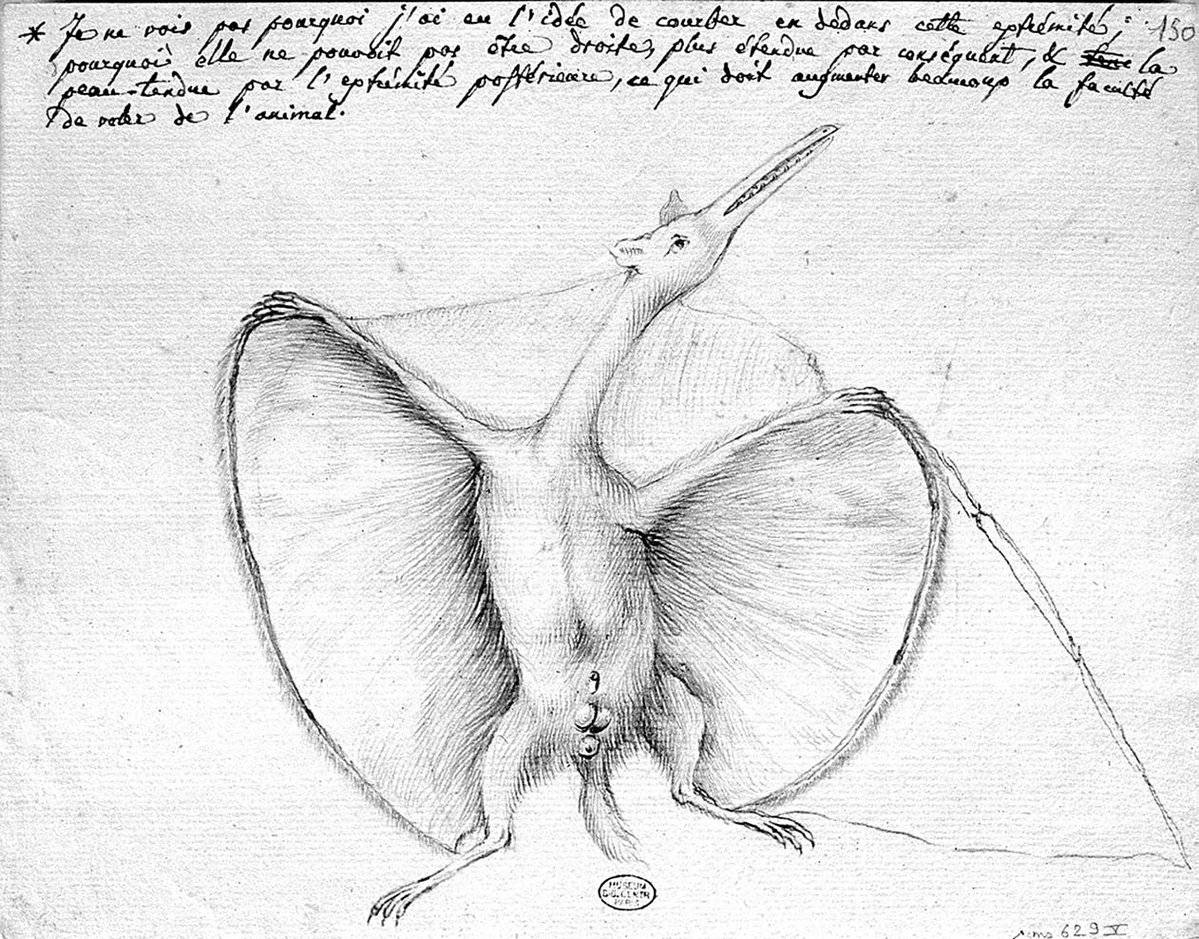 * Je ne vois pas pourquoi j'ai eu l'idée de courber en dedans cette extrémité; 130
pourquoi elle ne pouvoit pas être droite, plus étendue par conséquent, & la
peau tendue par l'extrémité postérieure, ce qui doit augmenter beaucoup la faculté
de voler de l'animal.
MUSEUM
D'H. CENTR
PARIS
ms 629 V